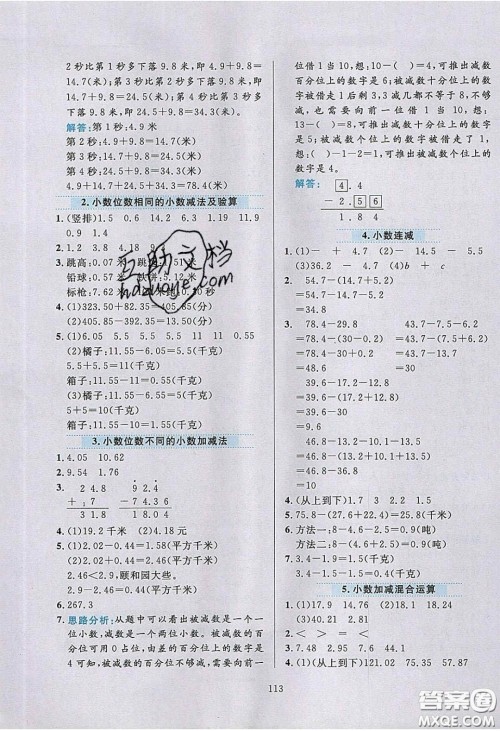 2秒比第1秒多下落9.8米,即4.9+9.8=
14.7(米);第3秒比第2秒多下落9.8米,
即14.7+9.8=24.5(米);第4秒比第3秒多下
落9.8米,即24.5+9.8=34.3(米)。
解答:第1秒:4.9米
第2秒:4.9+9.8=14.7(米)
第3秒:14.7+9.8=24.5(米)
第4秒:24.5+9.8=34.3(米)
4.9+14.7+24.5+34.3=78.4(米)
2.小数位数相同的小数减法及验算
1.(竖排)1.5 0.6 1.5 1.18 11.9
0.9 14
2. 4.8
3.跳高:0.07米
铅球:0.52米 5.12米
标枪:7.62米
4.(1)323.03+82.82=405.85(分)
(2)405.85-392.35=13.5(分)
5.(1)6.05 5.5 5.5 11 11 0.55
(2)橘子:11.55-6.05=5.5(千克)
5.5+5.5=11(千克)
箱子:11.55-11=0.55(千克)
(3)橘子:11.55-6.55=5(千克)
5+5=10(千克)
箱子:11.55-10=1.55(千克)
3.小数位数不同的小数加减法
1. 4.05 10.62
2. 9.54 1.76
3. 2 4.8 9 2.4
4.(1)19.2千米 (2)4.18元
5.(1)2.02-0.44=1.58(平方千米)
(2)2.02+0.44=2.46(平方千米)
2.46<2.9,颐和园大些。
6. 267.3
7.思路分析:从题中可以看出被减数是一个一
位小数,减数是一个两位小数。被减数的百
分位可用0占位,由差的百分位上的数字是
4可知,被减数的百分位不够减,需要向前一
位借1当10,想:10-( )=4,可推出减数
百分位上的数字是6;被减数十分位上的数字
被借走1后剩3,3减几都不等于8,不够
减,也需要向前一位借1当10,想:
13-( )=8,可推出减数十分位上的数字
是5;被减数个位上的数字被借走1,想:
( )-1-2=1,可推出被减数个位上的数
字是4。
解答: 4.4
- 2.5 6
1.8 4
4.小数连减
1.(1)- + 4.7 (2)- - 4.5
(3)36.2 - - (4)b + c
2. 54.7-18.5-0.2
=54.7-(18.5+0.2)
=36
3. 78.4-30-0.2 43.7-8.5-7.5
=78.4-(30-0.2) =43.7-(8.5+7.5)
=48.2 =27.7
39.6-18-11.6
=39.6-11.6-18
=10
46.8-13.2-23.6
=46.8-(13.2+23.6)
=10
4.(从上到下)1.7 3 2.2 1.5
5. 75.8-(27.6+22.4)=25.8(千米)
6.方法一:8-4.6-2.5=0.9(吨)
方法二:8-(4.6+2.5)=0.9(吨)
7. 3.4-1.5-1.5=0.4(千米)
3.4-(1.5+1.5)=0.4(千米)
5.小数加减混合运算
1.(1)17.9 14.76 (2)18.9 24.5
2. < > = >
4.(1)(从上到下)121.02 75.35 57.87
113
互助文档
hdzuoye.com
答案圈
MXQE.COM